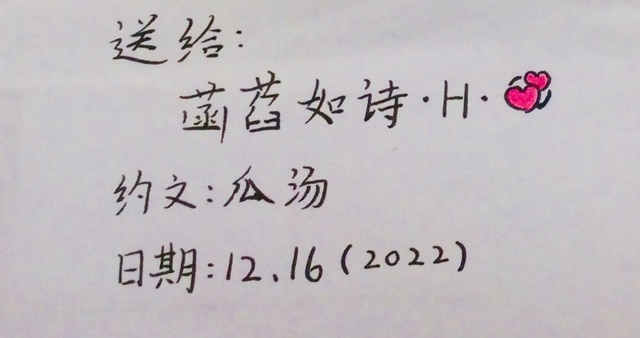 送给:
菡萏如诗·H·
约文:瓜汤
日期:12.16(2022)